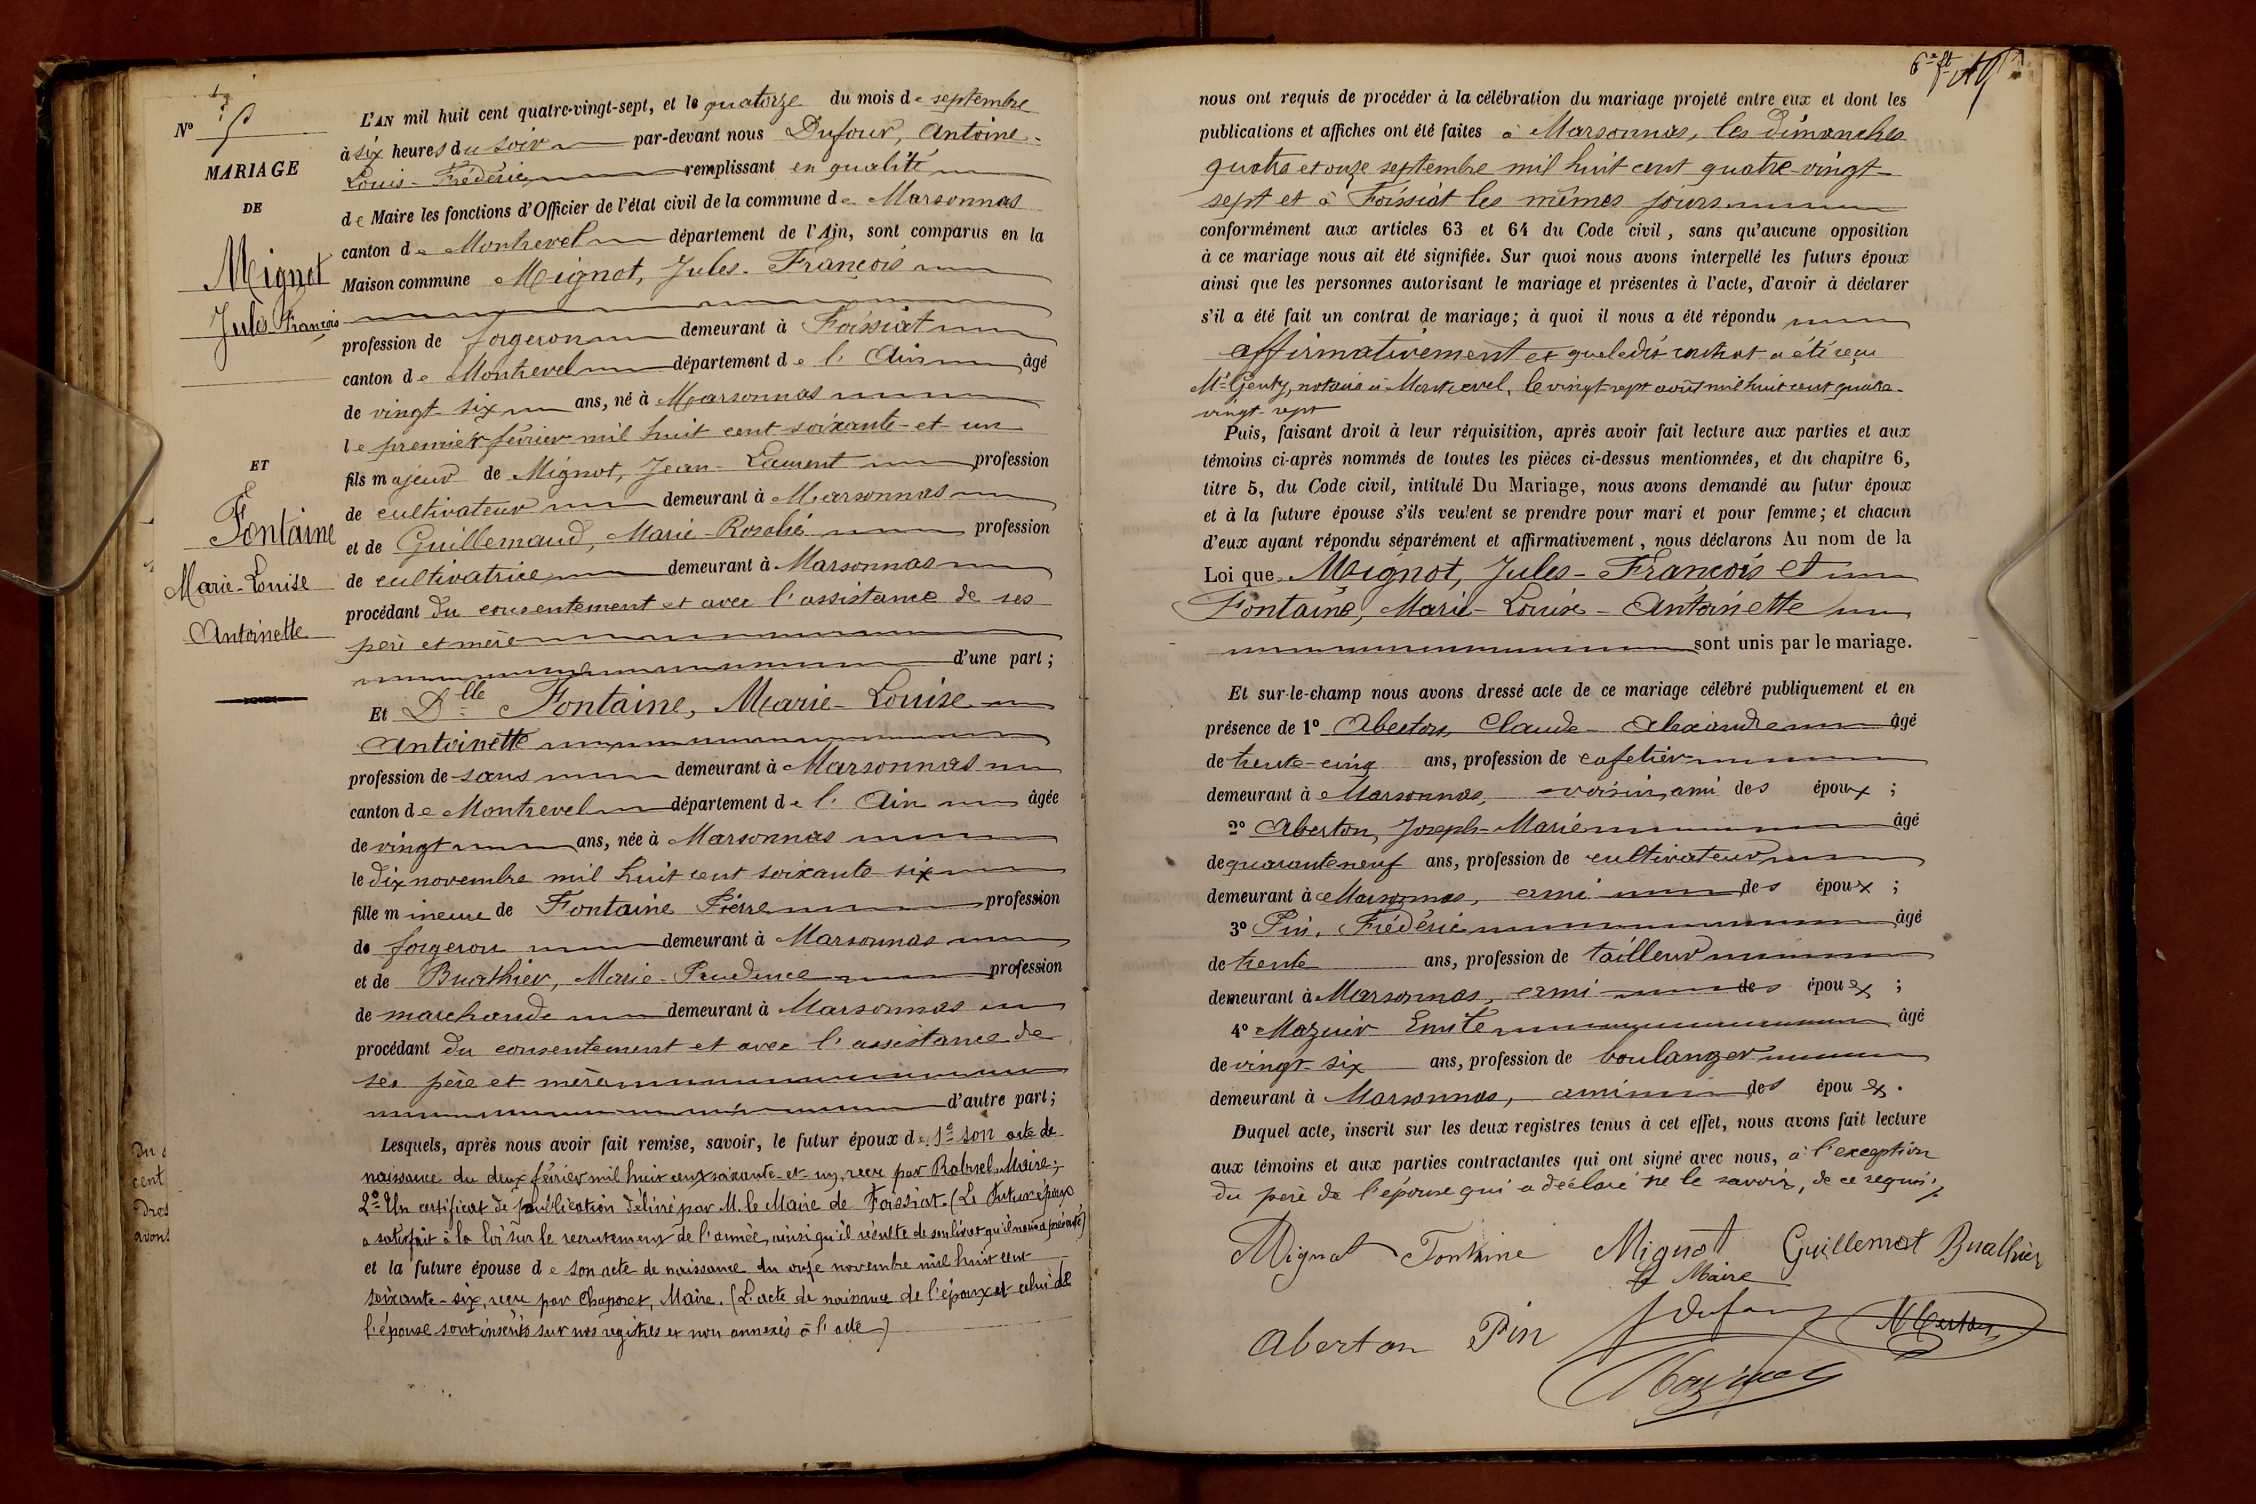 Nº 5
MARIAGE
DE
Mignot
Jules François
ET
Fontaine
Marie-Louise
Antoinette
L'AN mil huit cent quatre-vingt-sept, et le quatorze du mois de septembre
à six heures du soir par-devant nous Dufour, Antoine-
Louis-Frédéric remplissant en qualité
de Maire les fonctions d'Officier de l'état civil de la commune de Marsonnas
canton de Montrevel département de l'Ain, sont comparus en la
Maison commune Mignot, Jules-François
profession de forgeron demeurant à Foissiat
canton de Montrevel département de l'Ain âgé
de vingt-six ans, né à Marsonnas
le premier février mil huit cent soixante-et-un
fils majeur de Mignot, Jean-Laurent profession
de cultivateur demeurant à Marsonnas
et de Guillemaud, Marie-Rosalie profession
de cultivatrice demeurant à Marsonnas
procédant du consentement et avec l'assistance de ses
père et mère
d'une part;
Et Dlle Fontaine, Marie-Louise
Antoinette
profession de sans demeurant à Marsonnas
canton de Montrevel département de l'Ain âgée
de vingt ans, née à Marsonnas
le dix novembre mil huit cent soixante six
fille mineure de Fontaine Pierre profession
de forgeron demeurant à Marsonnas
et de Buathier, Marie-Prudence profession
de marchande demeurant à Marsonnas
procédant du consentement et avec l'assistance de
ses père et mère
d'autre part;
Lesquels, après nous avoir fait remise, savoir, le futur époux de 1º son acte de
naissance du deux février mil huit cent soixante-et-un, reçu par Maire;
2º Un certificat de publication délivré par M. le Maire de Foissiat. (Le futur époux
a satisfait à la loi sur le recrutement de l'armée, ainsi qu'il résulte de son livret qu'il nous a présenté)
et la future épouse de son acte de naissance du onze novembre mil huit cent
soixante-six, reçu par Chaponet, Maire. (L'acte de naissance de l'époux et celui de
l'épouse sont inscrits sur nos registres et non annexés à l'acte)
6e ft
nous ont requis de procéder à la célébration du mariage projeté entre eux et dont les
publications et affiches ont été faites à Marsonnas, les dimanches
quatre et onze septembre mil huit cent quatre-vingt-
sept et à Foissiat les mêmes jours
conformément aux articles 63 et 64 du Code civil, sans qu'aucune opposition
à ce mariage nous ait été signifiée. Sur quoi nous avons interpellé les futurs époux
ainsi que les personnes autorisant le mariage et présentes à l'acte, d'avoir à déclarer
s'il a été fait un contrat de mariage; à quoi il nous a été répondu
affirmativement et que ledit contrat a été reçu
Me Genty, notaire à Montrevel, le vingt-sept août mil huit cent quatre-
vingt-sept
Puis, faisant droit à leur réquisition, après avoir fait lecture aux parties et aux
témoins ci-après nommés de toutes les pièces ci-dessus mentionnées, et du chapitre 6,
titre 5, du Code civil, intitulé Du Mariage, nous avons demandé au futur époux
et à la future épouse s'ils veulent se prendre pour mari et pour femme; et chacun
d'eux ayant répondu séparément et affirmativement, nous déclarons Au nom de la
Loi que Mignot, Jules-François et
Fontaine, Marie-Louise-Antoinette
sont unis par le mariage.
Et sur-le-champ nous avons dressé acte de ce mariage célébré publiquement et en
présence de 1º Aberton, Claude-Alexandre âgé
de trente-cinq ans, profession de cafetier
demeurant à Marsonnas, voisin, ami des époux;
2º Aberton, Joseph-Marie âgé
de quarante neuf ans, profession de cultivateur
demeurant à Marsonnas, ami des époux;
3º Pin, Frédéric âgé
de trente ans, profession de tailleur
demeurant à Marsonnas, ami des époux;
4º Mazuir Emile âgé
de vingt-six ans, profession de boulanger
demeurant à Marsonnas, ami des époux.
Duquel acte, inscrit sur les deux registres tenus à cet effet, nous avons fait lecture
aux témoins et aux parties contractantes qui ont signé avec nous, à l'exception
du père de l'épouse qui a déclaré ne le savoir, de ce requis.
Mignot Fontaine Mignot Guillemot Buathier
Le Maire
Aberton Pin Dufour Aberton